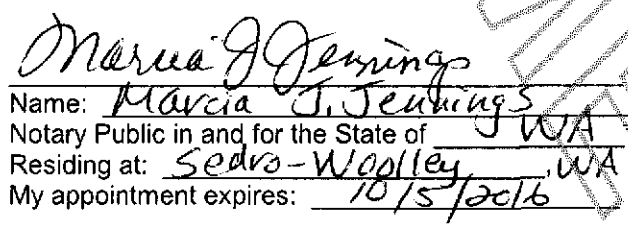 Marcia J Jennings
Name: Marcia J. Jennings
Notary Public in and for the State of WA
Residing at: Sedro-Woolley, WA
My appointment expires: 10/5/2016